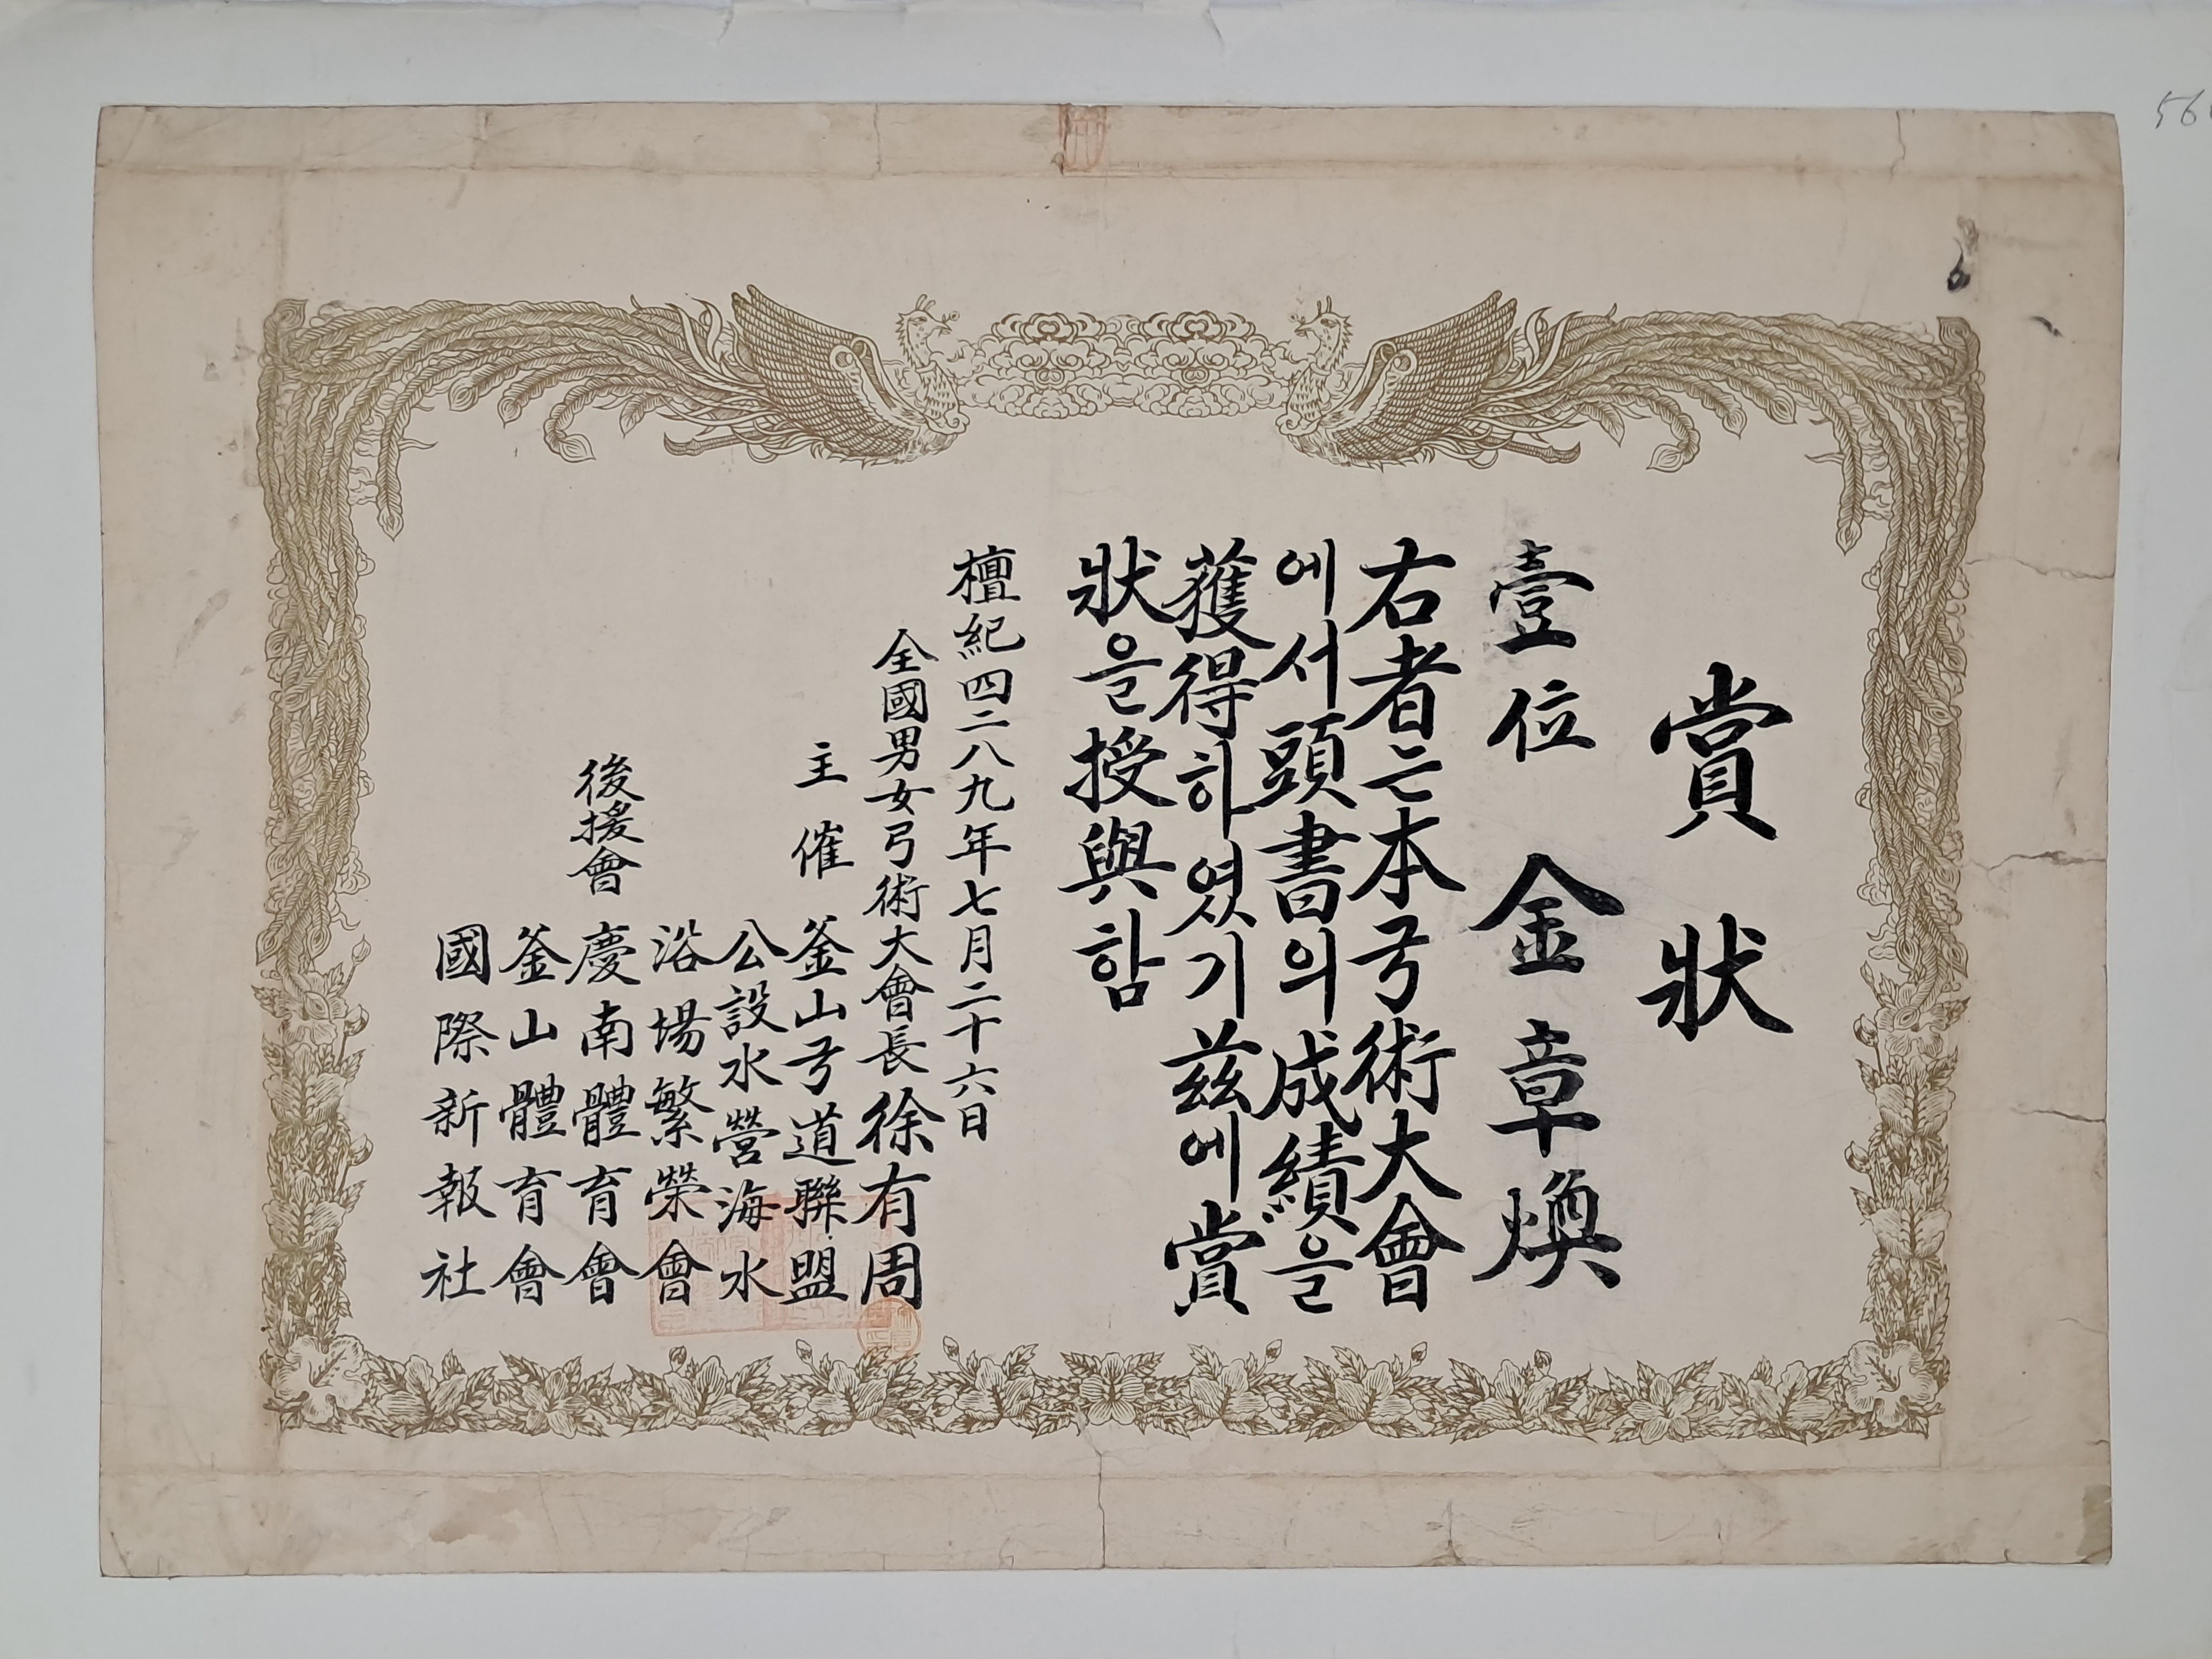 賞狀
壹位 金章煥
右者는本弓術大會
에서頭書의成績을
獲得하였기玆에賞
狀을授與함
檀紀四二八九年七月二十六日
全國男女弓術大會長 徐有周
主催 釜山弓道聯盟
公設水營海水
浴場繁榮會
後援會 慶南體育會
釜山體育會
國際新報社